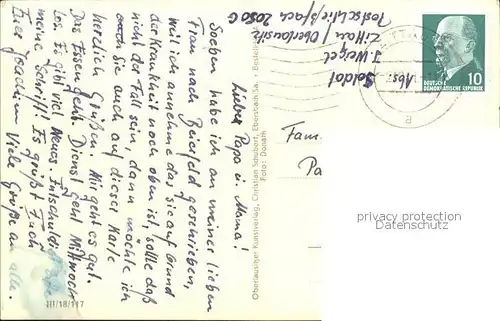 Lieber Papa u. Mama!
Soeben habe ich an meiner lieben
Frau nach Beierfeld geschrieben,
weil ich annehme das sie auf Grund
der Krankheit noch oben ist, sollte daß
nicht der Fall sein dann möchte ich
sie auch auf dieser Karte
herzlich Grüßen. Mir geht es gut.
Das Essen geht Dienst
los. Es gibt viel Neues. Entschuldigt
meine Schrift! Es grüßt Euch
Euer Joachim Viele Grüße an alle.
III/18/117
Oberlausitzer Kunstverlag, Christian Schubert, Ebersbach Sa.
Foto: Donath
Soldat
J. Weigel
Zittau/Oberlausitz
Postschließfach 2050 G
DEUTSCHE
DEMOKRATISCHE REPUBLIK
10
a
Fam
privacy protection
Datenschutz